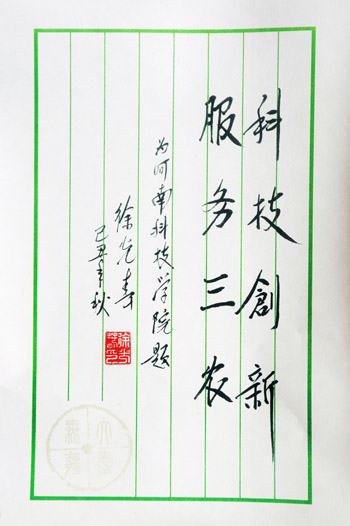 科技創新
服务三农
为河南科技学院题
徐光春
己丑年秋